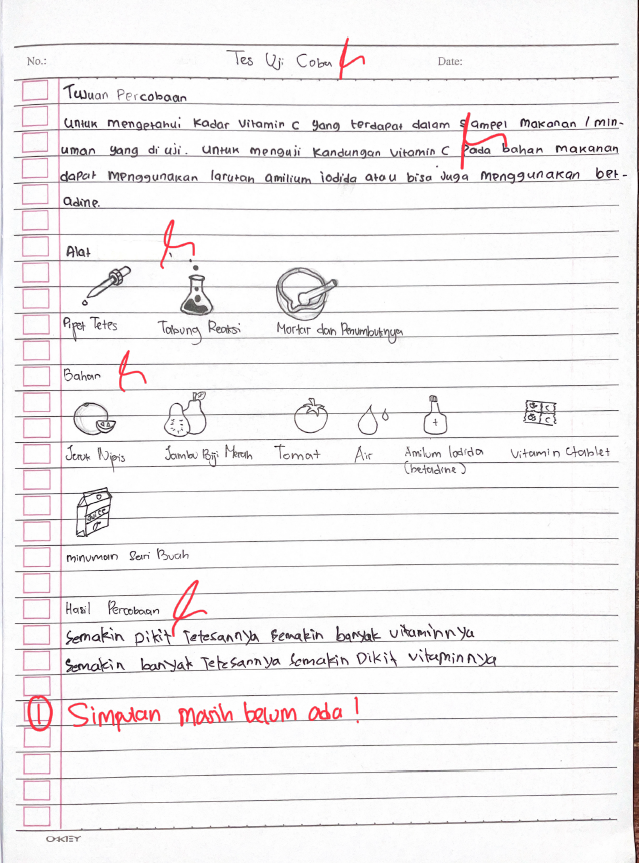 No.:
Tes Uji Coba
Date:
Tujuan Percobaan
Untuk mengetahui Kadar Vitamin C yang terdapat dalam stampel makanan / min-
uman yang di uji. Untuk menguji Kandungan Vitamin C pada bahan makanan
dapat menggunakan larutan amilium iodida atau bisa juga menggunakan bet-
adine.
Alat
Pipet Tetes
Tabung Reaksi
Mortar dan Penumbutnya
Bahan
Jeruk Nipis
Jambu Biji Merah
Tomat
Air
Amilum Iodida
(betadine)
Vitamin Ctablet
minuman Sari Buah
Hasil Percobaan
Semakin Dikit Tetesannya Semakin banyak vitaminnya
Semakin banyak Tetesannya Semakin Dikit vitaminnya
1 Simpulan masih belum ada!
OKEY